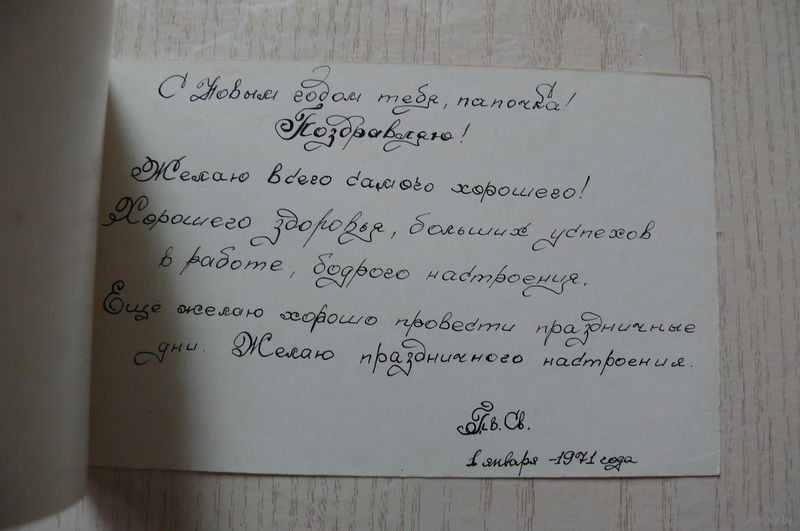 С Новым годом тебя, папочка!
Поздравляю!
Желаю всего самого хорошего!
Хорошего здоровья, больших успехов
в работе, бодрого настроения.
Ещё желаю хорошо провести праздничные
дни. Желаю праздничного настроения.
Св.
1 января -1971 года